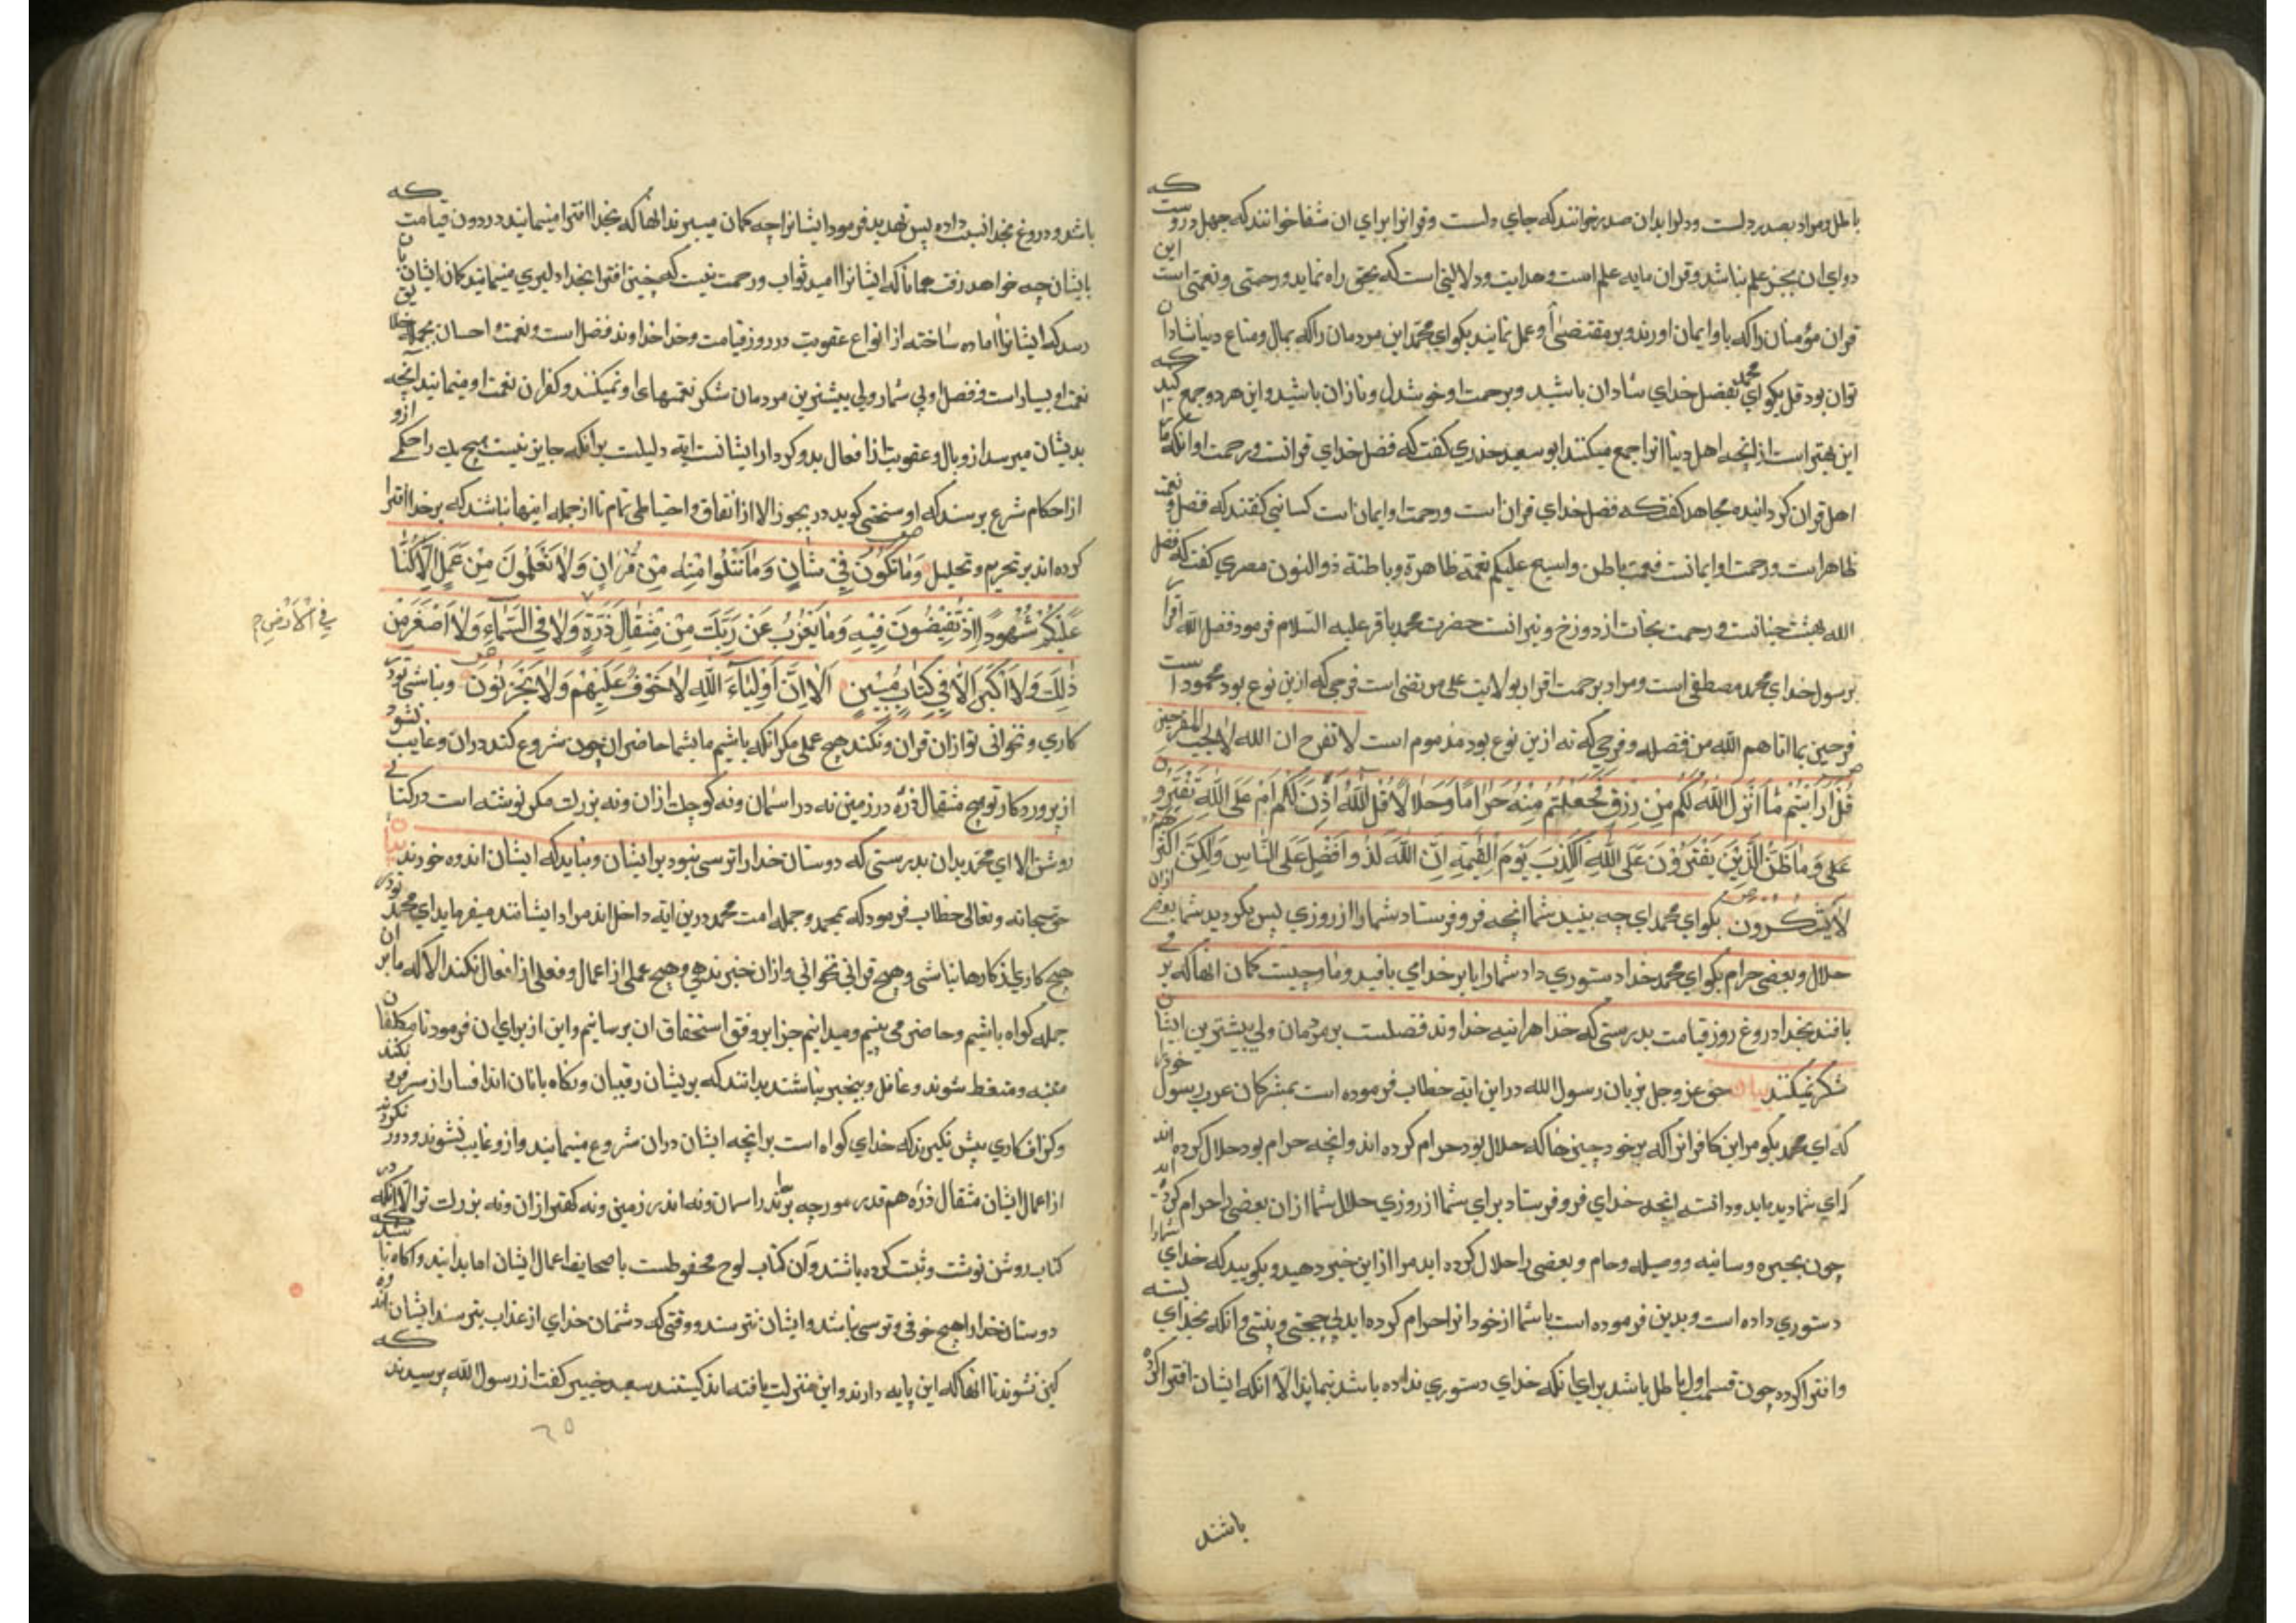 باطل و مراد بصدر دلست و دلرا بدان صدر خوانند که جای دلست و قرانرا برای ان شفا خوانند که جهل دردیست که
دوای ان بجز علم نباشد و قران مایه علم است و هدایت و دلالتی است که بحق راه نماید و رحمتی و نعمتی است این
قران مؤمنان را که باو ایمان اورند و بر مقتضی او عمل نمایند بکو ای محمد این مردمان را که بمال و متاع دنیا شادان
توان بود قل بکو ای محمد بفضل خدای شادان باشید و برحمت او خوشدل و نازان باشید و این هر دو جمع کنید که
این بهتر است از انچه اهل دنیا انرا جمع میکنند ابو سعید خدری کفت که فضل خدای قرانست و رحمت او انکه ما را
اهل قران کردانیده مجاهد کفت که فضل خدای قران است و رحمت او ایمان است کسانی کفتند که فضل و نعمت
ظاهر است و رحمت او ایمانست و نعمت باطن و اسبغ علیکم نعمه ظاهرة و باطنة ذوالنون مصری کفت که فضل
الله بهشت جنانست و رحمت نجات از دوزخ و نیرانست حضرت محمد باقر علیه السلام فرمود فضل الله اقرار
برسول خدای محمد مصطفی است و مراد برحمت اقرار بولایت علی مرتضی است فرحی که ازین نوع بود محمود است
فرحین بما اتاهم الله من فضله و فرحی که نه ازین نوع بود مذموم است لا تفرح ان الله لا یحب الفرحین
قُلْ اَرَاَیْتُمْ مٰا اَنْزَلَ اللّٰهُ لَکُمْ مِنْ رِزْقٍ فَجَعَلْتُمْ مِنْهُ حَرٰامًا وَحَلٰالًا قُلْ آللّٰهُ اَذِنَ لَکُمْ اَمْ عَلَی اللّٰهِ تَفْتَرُونَ
علی وَمٰا ظَنُّ الَّذِینَ یَفْتَرُونَ عَلَی اللّٰهِ الْکَذِبَ یَوْمَ الْقِیٰمَةِ اِنَّ اللّٰهَ لَذُو افَضْلٍ عَلَی النّٰاسِ وَلٰکِنَّ اَکْثَرَهُمْ
لٰا یَشْکُرُونَ بکو ای محمد ای چه بینید شما انچه فرو فرستاد شما را از روزی پس بکردید شما بعضی ازان
حلال و بعضی حرام بکو ای محمد خدا دستوری داد شما را یا بر خدا می بافید و ما چیست کمان انها که بر
بافند بخدا دروغ روز قیامت بدرستی که خدا هراینه خداوند فضلست بر مردمان ولی بیشترین ایشان
شکر نمیکنند بیان حق عز و جل بزبان رسول الله در این ایه خطاب فرموده است بمشرکان عرب رسول خود را
که ای محمد بکو مر این کافرانرا که بر خود چیزها که حلال بود حرام کرده اند و انچه حرام بود حلال کرده اند
که ای شما دیده باید و دانسته انچه خدای فرو فرستاد برای شما از روزی حلال شما ازان بعضی را حرام کرده اید
چون بحیره و سائبه و وصیله و حام و بعضی را حلال کرده اید مرا از این خبر دهید و بکویید که خدای شما را
دستوری داده است و بدین فرموده است یا شما از خود انرا حرام کرده اید بی حجتی و بینتی و انکه بخدای بسته
و افترا کرده چون قسمت اول باطل باشد برای انکه خدای دستوری نداده باشد نماید الا انکه ایشان افترا کرده
باشند
باشد و دروغ بخدا نسبت داده پس تهدید فرمود ایشانرا چه کمان میبرند انها که بخدا افترا مینمایند در دون قیامت که
بایشان چه خواهد رفت همانا که ایشانرا امید ثواب و رحمت نیست که چنین افترا بخدا و دلیری مینمایند کمان ایشان بان
رسد که ایشانرا اماده ساخته از انواع عقوبت در روز قیامت و خدا خداوند فضل است و نعمت و احسان بجمله خلایق
نعمت او بسیار است و فضل او بی شمار ولی بیشترین مردمان شکر نعمتهای او نمیکنند و کفران نعمت او مینمایند انچه
بدیشان میرسد از وبال و عقوبت از افعال بد و کردار ایشانست ایه دلیلست برانکه جایز نیست هیچ یک را حکمی ازو
از احکام شرع برسند که او سختی کوید در یجوز الا از اتفاق و احتیاطی تمام تا از جمله اینها نباشند که بر خدا افترا
کرده اند بر تحریم و تحلیل وَمٰا تَکُونُ فِی شَأنٍ وَمٰا تَتْلُوا مِنْهُ مِنْ قُرْآنٍ وَلٰا تَعْمَلُونَ مِنْ عَمَلٍ اِلّٰا کُنّٰا
عَلَیْکُمْ شُهُودًا اِذْ تُفِیضُونَ فِیهِ وَمٰا یَعْزُبُ عَنْ رَبِّکَ مِنْ مِثْقٰالِ ذَرَّةٍ وَلٰا فِی السَّمٰاءِ وَلٰا اَصْغَرَ مِنْ
فِی الْاَرْضِ م
ذٰلِکَ وَلٰا اَکْبَرَ اِلّٰا فِی کِتٰابٍ مُبِینٍ اَلٰا اِنَّ اَوْلِیٰاءَ اللّٰهِ لٰا خَوْفٌ عَلَیْهِمْ وَلٰا یَحْزَنُونَ و نباشی تو در
کاری و نخوانی تو ازان قران و نکنید هیچ عملی مکر انکه باشیم ما بشما حاضران چون شروع کنید دران و غایب نشود
از پروردکار تو هیچ مثقال ذرّه در زمین نه در اسمان و نه کوچک ازان و نه بزرک مکر نوشته است در کتابی
روشن الا ای محمد بدان بدرستی که دوستان خدا را ترسی نبود بر ایشان و نباید که ایشان اندوه خورند بیان
حق سبحانه و تعالی خطاب فرمود که بمحمد و جمله امت محمد درین ایه داخل اند مراد ایشانند میفرماید ای محمد تو در
هیچ کاری از کارها نباشی و هیچ قرانی نخوانی و ازان خبر ندهی و هیچ عملی از اعمال و فعلی از افعال نکنند الا که ما بران
جمله کواه باشیم و حاضر می بینیم و میدانیم جزا بر وفق استحقاق ان برسانیم و این از برای ان فرمود تا مکلفان
متنبه و متعظ شوند و غافل و بیخبر نباشند بدانند که بریشان رقیبان و نکاه بانان اند افسار از سر فرو نکنند
و کزاف کاری پیش نکیرند که خدای کواه است برانچه ایشان دران شروع مینمایند و ازو غایب نشوند و دور نکردند
از اعمال ایشان مثقال ذرّه هم قدر مورچه نه در اسمان و نه اندر زمین و نه کهتر ازان و نه بزرک تر الا انکه در
کتاب روشن نوشت و ثبت کرده باشند و آن کتاب لوح محفوظست یا صحایف اعمال ایشان اما بدانید و اکاه باشید که
دوستان خدا را هیچ خوفی و ترسی نباشد و ایشان نترسند و وقتی که دشمنان خدای از عذاب بترسند ایشان اندوه
کین نشوند تا انها که این پایه دارند و این منزلت یافته اند کیستند سعید جبیر کفت از رسول الله پرسیدند که
٦٥